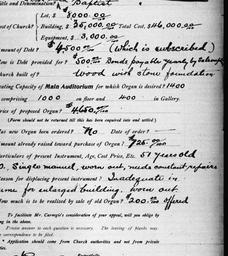 Title and Denomination? Baptist
Lot, $ 8000.00
Cost of Church? Building, $ 35,000.00 Total Cost, $46,000.00
Equipment, $ 3,000.00
Amount of Debt? $4500.00 (Which is subscribed)
How is Debt provided for? $500.00 Bonds payable yearly by
Church built of? Wood with stone foundation
Seating Capacity of Main Auditorium for which Organ is desired? 1400
comprising 1000 on floor and 400 in Gallery.
Price of proposed Organ? $4650.00
(Form should not be returned till this has been enquired into and settled.)
Has new Organ been ordered? No Date of order?
Amount already raised toward purchase of Organ? $725.00
Particulars of present Instrument, Age, Cost Price, Etc. 57 years old
Single manual, worn out, needs constant repairs
Reason for displacing present instrument? Inadequate in
for enlarged building, worn out
How much is to be realized by sale of old Organ? $200.00 offered
To facilitate Mr. Carnegie's consideration of your appeal, will you oblige by
being in the above.
Precise answer to each question is necessary. The leaving of blanks may
correspondence to be filed.
Application should come from Church authorities and not from private
parties.